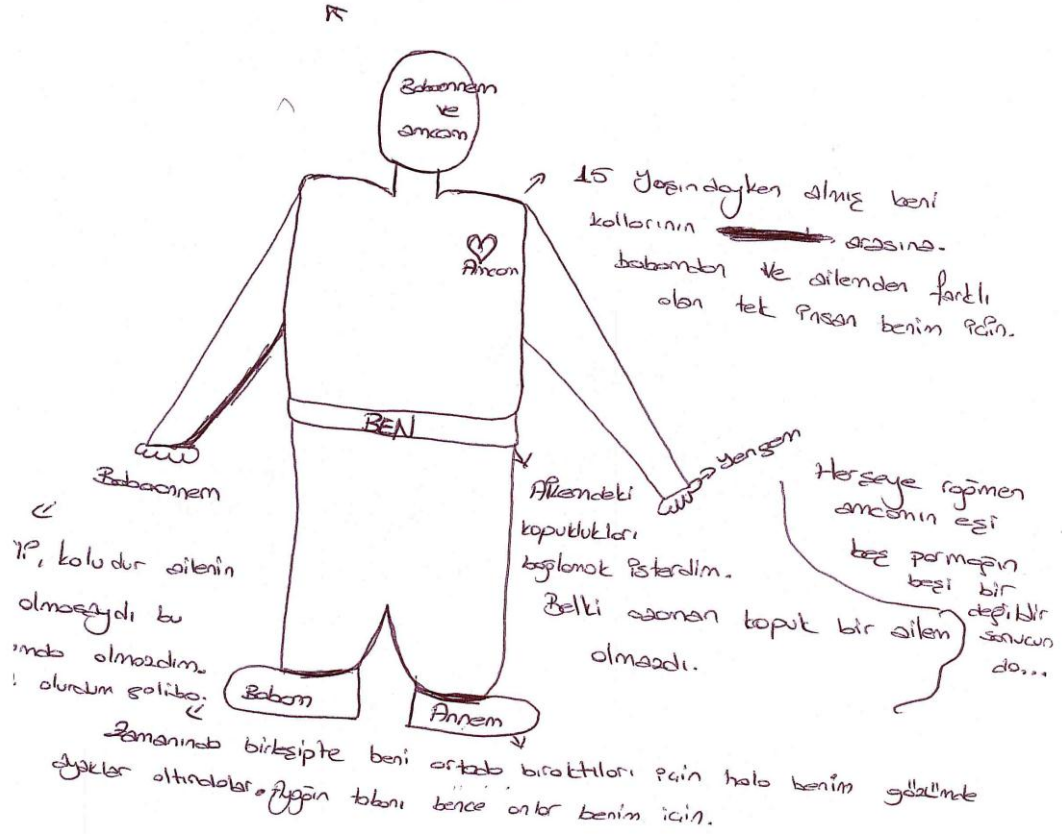 Babaannem
ve
amcam
15 yaşındayken almış beni
kollarının arasına.
babamdan ve ailemden farklı
olan tek insan benim için.
Amcam
BEN
Babaannem
Yengem
Herşeye rağmen
amcamın eşi
beş parmağın
beşi bir
değildir
sonucun
da...
Ailemdeki
kopuklukları
bağlamak isterdim.
Belki o zaman kopuk bir ailem
olmazdı.
koludur ailenin
olmasaydı bu
olmazdım.
olurdum galiba.
Babam
Annem
Zamanında birleşipte beni ortada bıraktıları için hala benim gözümde
ayaklar altındalar. Ayağın tabanı bence onlar benim için.